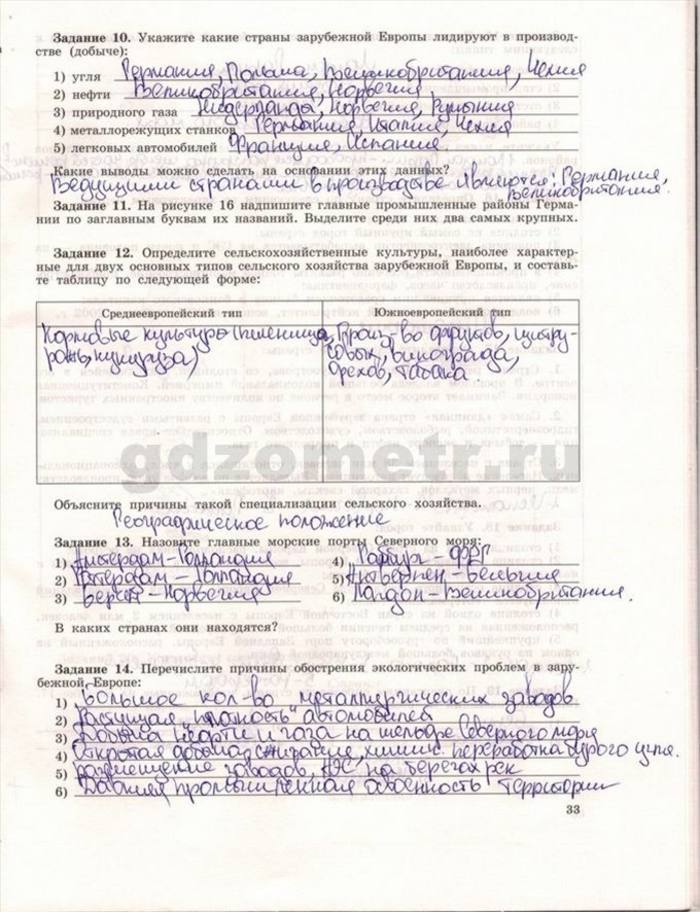 Задание 10. Укажите какие страны зарубежной Европы лидируют в производ-
стве (добыче):
1) угля Германия, Польша, Великобритания, Чехия
2) нефти Великобритания, Норвегия,
3) природного газа Нидерланды, Норвегия, Румыния
4) металлорежущих станков Германия, Италия, Чехия
5) легковых автомобилей Франция, Испания.
Какие выводы можно сделать на основании этих данных?
Ведущими странами в производстве являются: Германия,
Великобритания.
Задание 11. На рисунке 16 надпишите главные промышленные районы Герма-
нии по заглавным буквам их названий. Выделите среди них два самых крупных.
Задание 12. Определите сельскохозяйственные культуры, наиболее характер-
ные для двух основных типов сельского хозяйства зарубежной Европы, и составь-
те таблицу по следующей форме:
Среднеевропейский тип
Южноевропейский тип
Кормовые культуры (пшеница,
рожь, кукуруза)
Произ-во фруктов, цитру-
совых, винограда,
орехов, табака
gdzometr.ru
Объясните причины такой специализации сельского хозяйства.
Географическое положение
Задание 13. Назовите главные морские порты Северного моря:
1) Амтердам - Голландия
2) Роттердам - Голландия
3) Берген - Норвегия
4) Гамбург - ФРГ
5) Антверпен - Бельгия
6) Лондон - Великобритания.
В каких странах они находятся?
Задание 14. Перечислите причины обострения экологических проблем в зару-
бежной Европе:
1) Большое кол-во металлургических заводов
2) Растущая "плотность" автомобилей
3) Добыча нефти и газа на шельфе Северного моря
4) Открытая добыча, сжигание, химич. переработка бурого угля.
5) размещение заводов, АЭС на берегах рек
6) Давняя промышленная освоенность территории
33